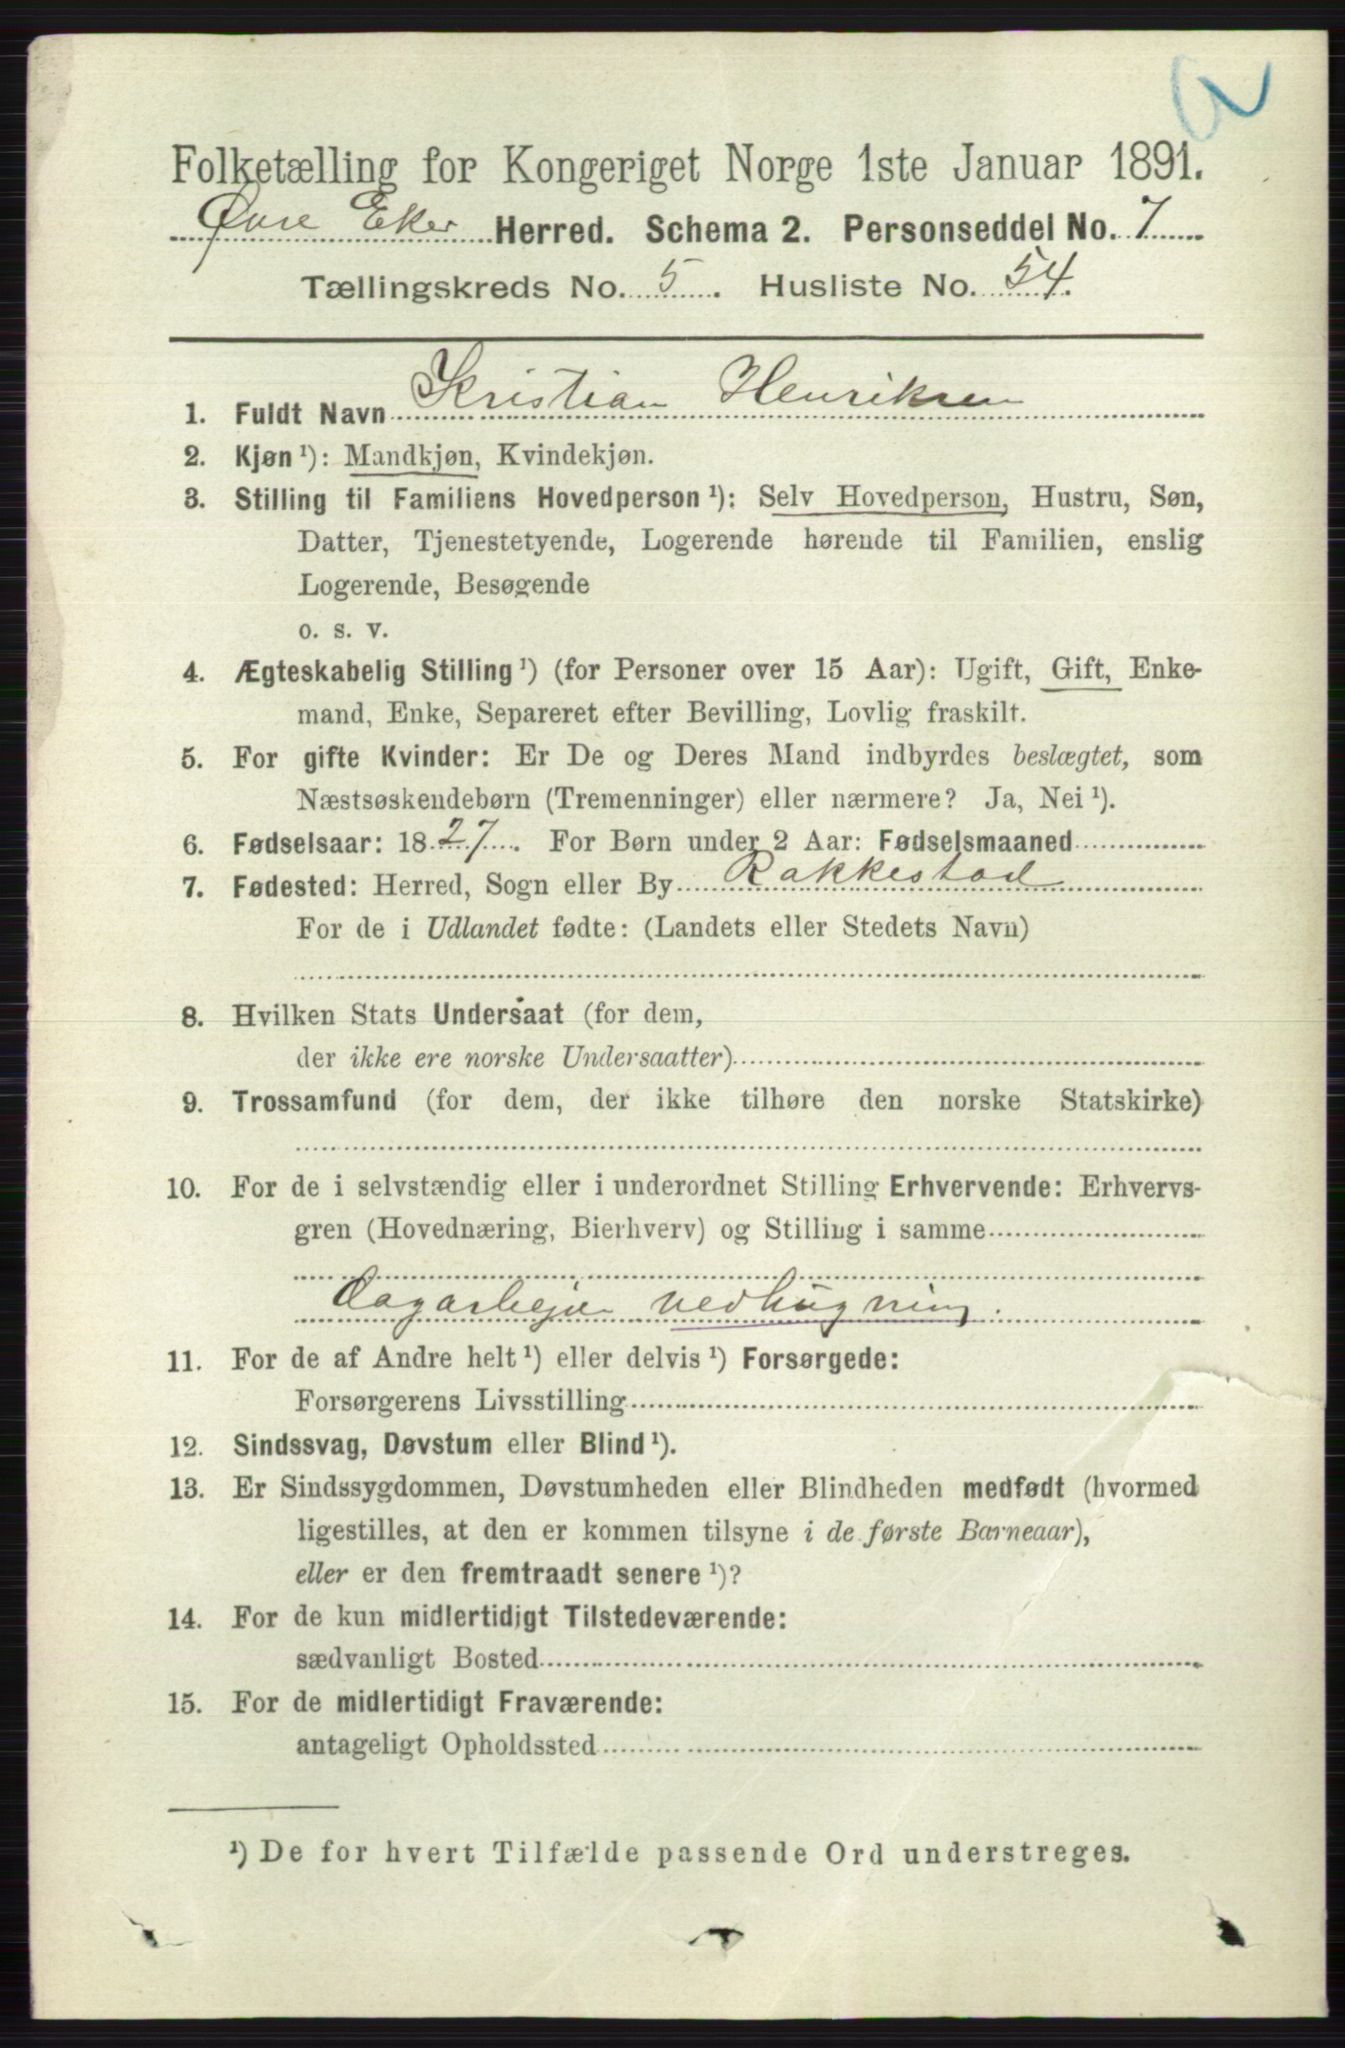 Folketælling for Kongeriget Norge 1ste Januar 1891.
Øvre Eker Herred. Schema 2. Personseddel No. 7
Tællingskreds No. 5. Husliste No. 54.
1. Fuldt Navn Kristian Henriksen
2. Kjøn ¹): Mandkjøn, Kvindekjøn.
3. Stilling til Familiens Hovedperson ¹): Selv Hovedperson, Hustru, Søn,
Datter, Tjenestetyende, Logerende hørende til Familien, enslig
Logerende, Besøgende
o. s. v.
4. Ægteskabelig Stilling ¹) (for Personer over 15 Aar): Ugift, Gift, Enke-
mand, Enke, Separeret efter Bevilling, Lovlig fraskilt.
5. For gifte Kvinder: Er De og Deres Mand indbyrdes beslægtet, som
Næstsøskendebørn (Tremenninger) eller nærmere? Ja, Nei ¹).
6. Fødselsaar: 1827. For Børn under 2 Aar: Fødselsmaaned
7. Fødested: Herred, Sogn eller By Rakkestad
For de i Udlandet fødte: (Landets eller Stedets Navn)
8. Hvilken Stats Undersaat (for dem,
der ikke ere norske Undersaatter)
9. Trossamfund (for dem, der ikke tilhøre den norske Statskirke)
10. For de i selvstændig eller i underordnet Stilling Erhvervende: Erhvervs-
gren (Hovednæring, Bierhverv) og Stilling i samme
Dagarbejder vedhugning.
11. For de af Andre helt ¹) eller delvis ¹) Forsørgede:
Forsørgerens Livsstilling
12. Sindssvag, Døvstum eller Blind ¹).
13. Er Sindssygdommen, Døvstumheden eller Blindheden medfødt (hvormed
ligestilles, at den er kommen tilsyne i de første Barneaar),
eller er den fremtraadt senere ¹)?
14. For de kun midlertidigt Tilstedeværende:
sædvanligt Bosted
15. For de midlertidigt Fraværende:
antageligt Opholdssted
¹) De for hvert Tilfælde passende Ord understreges.